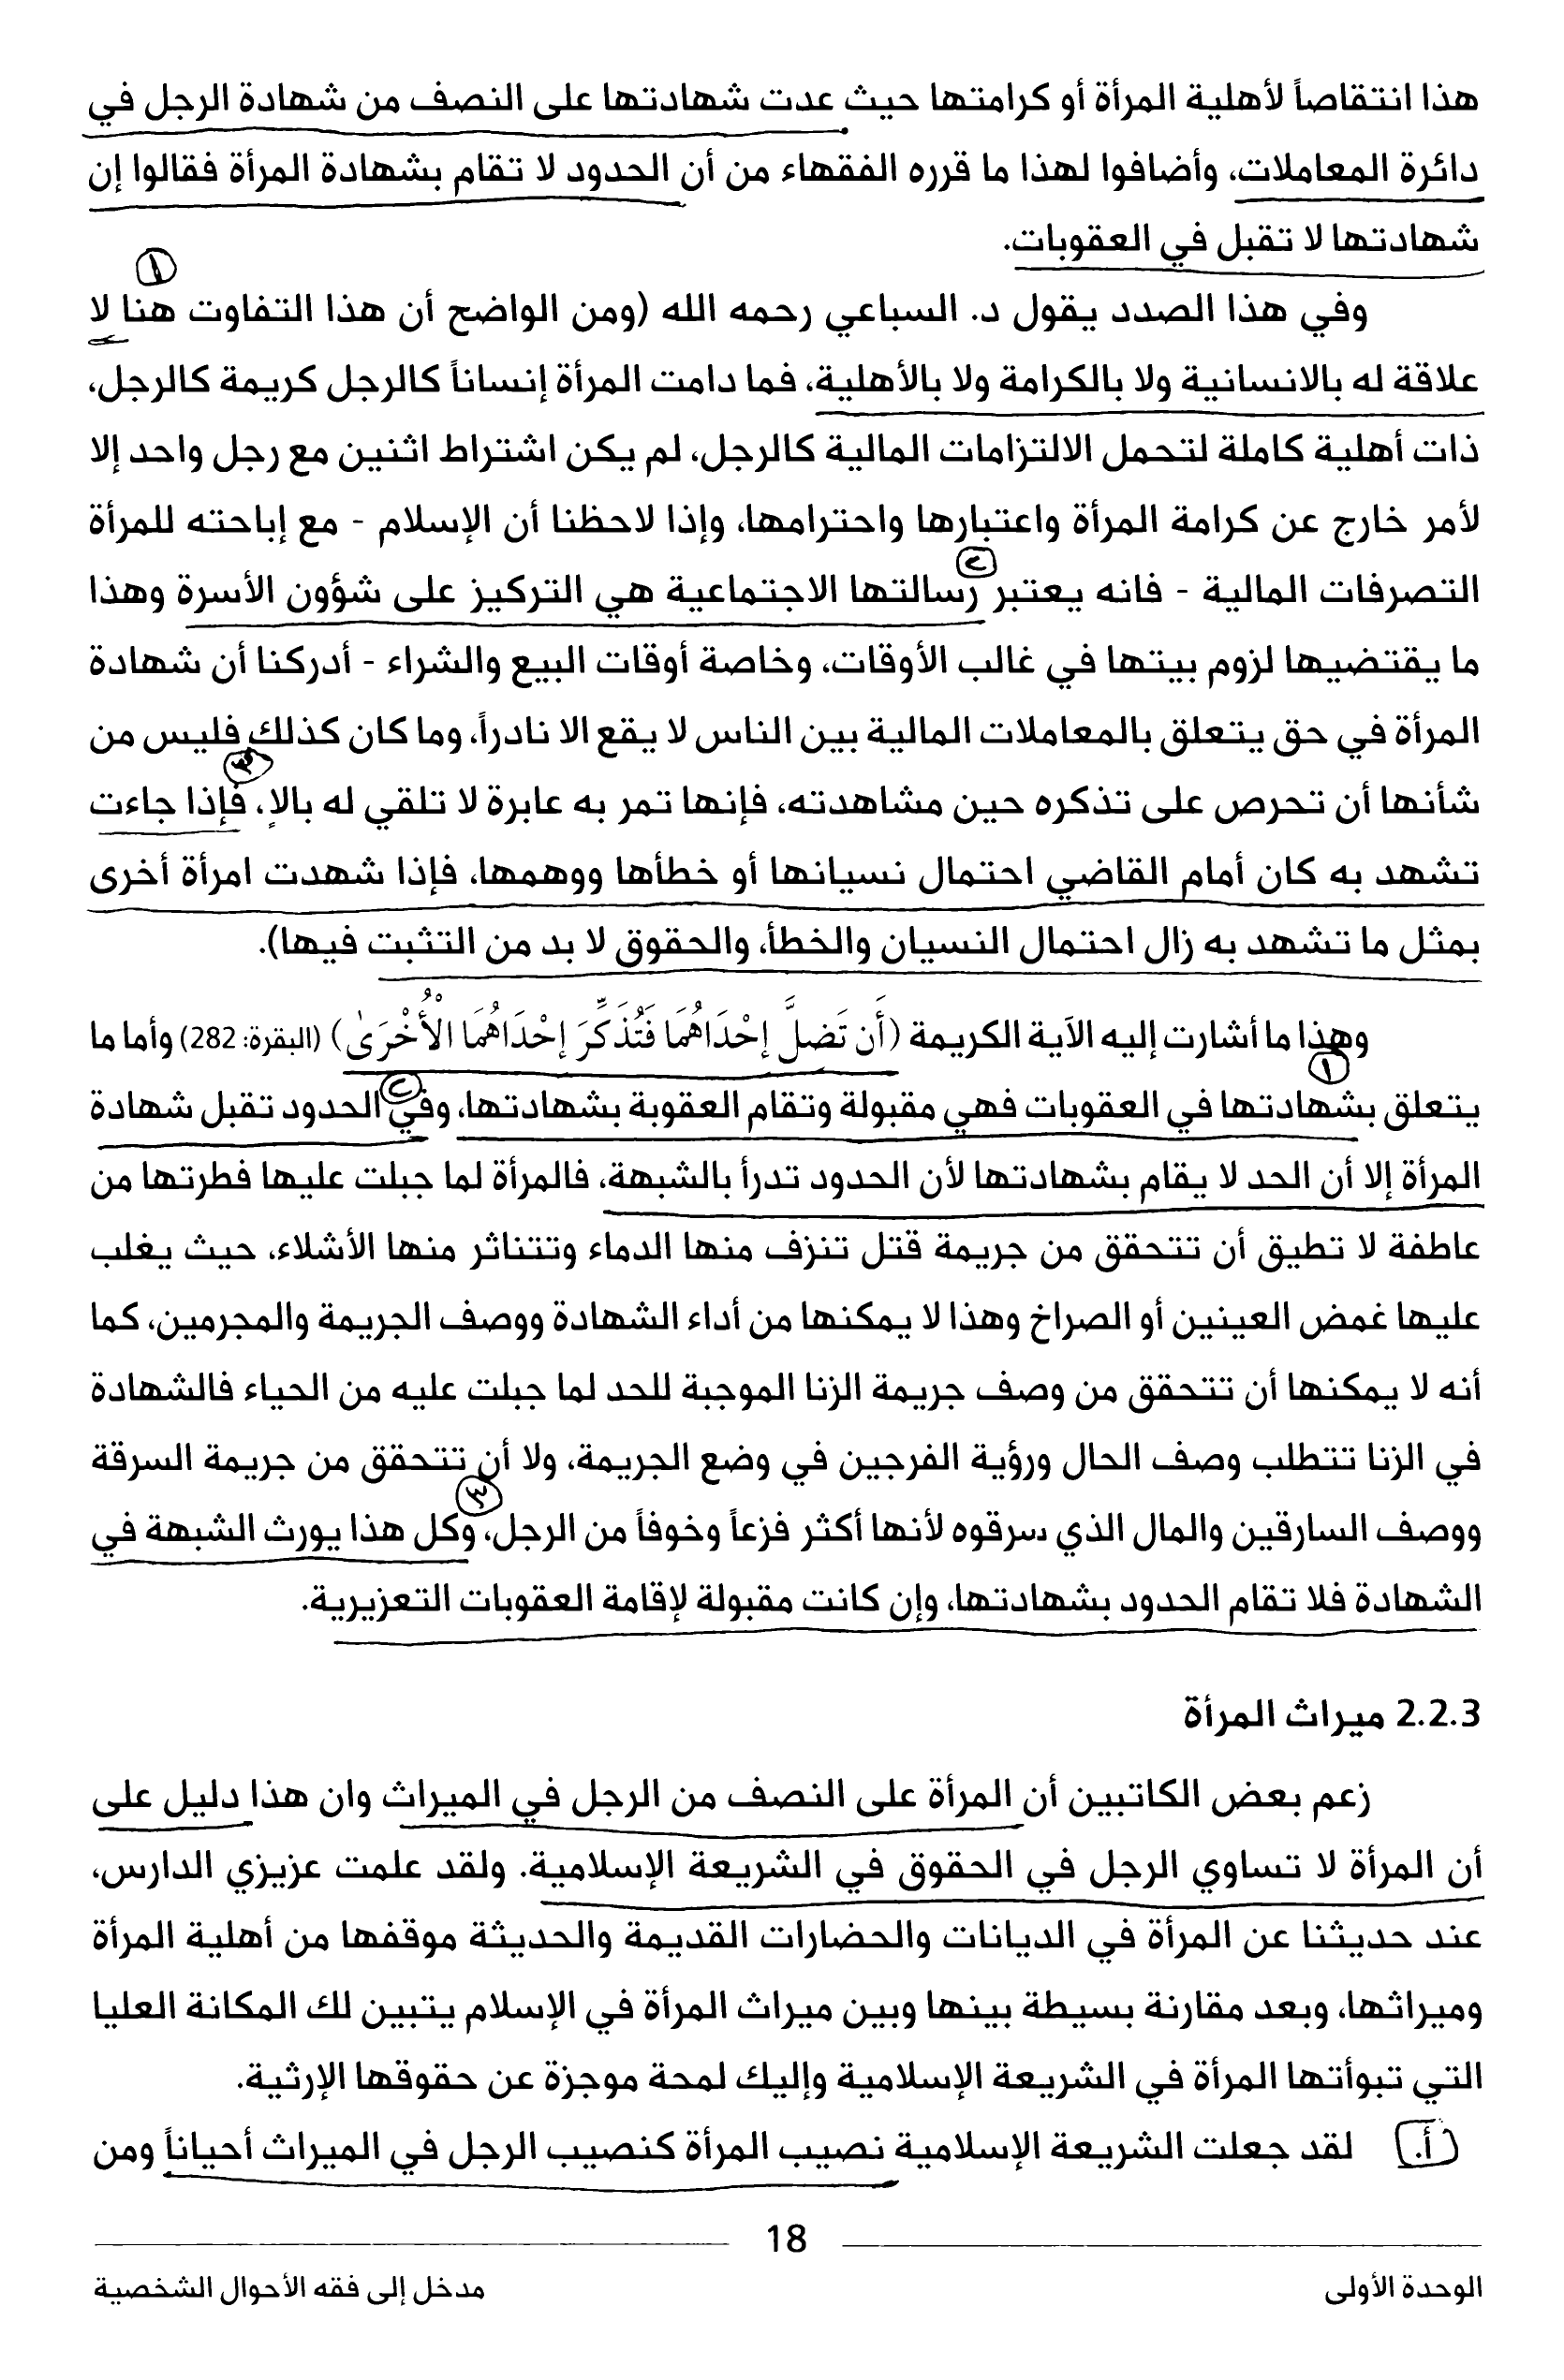 هذا انتقاصاً لأهلية المرأة أو كرامتها حيث عدت شهادتها على النصف من شهادة الرجل في
دائرة المعاملات، وأضافوا لهذا ما قرره الفقهاء من أن الحدود لا تقام بشهادة المرأة فقالوا إن
شهادتها لا تقبل في العقوبات.
١
وفي هذا الصدد يقول د. السباعي رحمه الله (ومن الواضح أن هذا التفاوت هنا لا
علاقة له بالانسانية ولا بالكرامة ولا بالأهلية، فما دامت المرأة إنساناً كالرجل كريمة كالرجل،
ذات أهلية كاملة لتحمل الالتزامات المالية كالرجل، لم يكن اشتراط اثنين مع رجل واحد إلا
لأمر خارج عن كرامة المرأة واعتبارها واحترامها، وإذا لاحظنا أن الإسلام - مع إباحته للمرأة
٢
التصرفات المالية - فانه يعتبر رسالتها الاجتماعية هي التركيز على شؤون الأسرة وهذا
ما يقتضيها لزوم بيتها في غالب الأوقات، وخاصة أوقات البيع والشراء - أدركنا أن شهادة
المرأة في حق يتعلق بالمعاملات المالية بين الناس لا يقع الا نادراً، وما كان كذلك فليس من
٣
شأنها أن تحرص على تذكره حين مشاهدته، فإنها تمر به عابرة لا تلقي له بالاٍ، فإذا جاءت
تشهد به كان أمام القاضي احتمال نسيانها أو خطأها ووهمها، فإذا شهدت امرأة أخرى
بمثل ما تشهد به زال احتمال النسيان والخطأ، والحقوق لا بد من التثبت فيها).
وهذا ما أشارت إليه الآية الكريمة (أَن تَضِلَّ إِحْدَاهُمَا فَتُذَكِّرَ إِحْدَاهُمَا الْأُخْرَىٰ) (البقرة: 282) وأما ما
١
٢
يتعلق بشهادتها في العقوبات فهي مقبولة وتقام العقوبة بشهادتها، وفي الحدود تقبل شهادة
المرأة إلا أن الحد لا يقام بشهادتها لأن الحدود تدرأ بالشبهة، فالمرأة لما جبلت عليها فطرتها من
عاطفة لا تطيق أن تتحقق من جريمة قتل تنزف منها الدماء وتتناثر منها الأشلاء، حيث يغلب
عليها غمض العينين أو الصراخ وهذا لا يمكنها من أداء الشهادة ووصف الجريمة والمجرمين، كما
أنه لا يمكنها أن تتحقق من وصف جريمة الزنا الموجبة للحد لما جبلت عليه من الحياء فالشهادة
في الزنا تتطلب وصف الحال ورؤية الفرجين في وضع الجريمة، ولا أن تتحقق من جريمة السرقة
٣
ووصف السارقين والمال الذي سرقوه لأنها أكثر فزعاً وخوفاً من الرجل، وكل هذا يورث الشبهة في
الشهادة فلا تقام الحدود بشهادتها، وإن كانت مقبولة لإقامة العقوبات التعزيرية.
2.2.3 ميراث المرأة
زعم بعض الكاتبين أن المرأة على النصف من الرجل في الميراث وان هذا دليل على
أن المرأة لا تساوي الرجل في الحقوق في الشريعة الإسلامية. ولقد علمت عزيزي الدارس،
عند حديثنا عن المرأة في الديانات والحضارات القديمة والحديثة موقفها من أهلية المرأة
وميراثها، وبعد مقارنة بسيطة بينها وبين ميراث المرأة في الإسلام يتبين لك المكانة العليا
التي تبوأتها المرأة في الشريعة الإسلامية وإليك لمحة موجزة عن حقوقها الإرثية.
أ. لقد جعلت الشريعة الإسلامية نصيب المرأة كنصيب الرجل في الميراث أحياناً ومن
18
الوحدة الأولى
مدخل إلى فقه الأحوال الشخصية